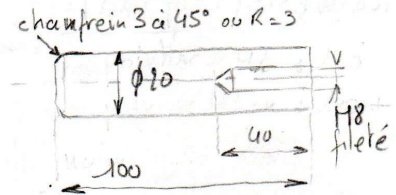 chamfrein 3 à 45° ou R=3
φ20
M8
fileté
40
100